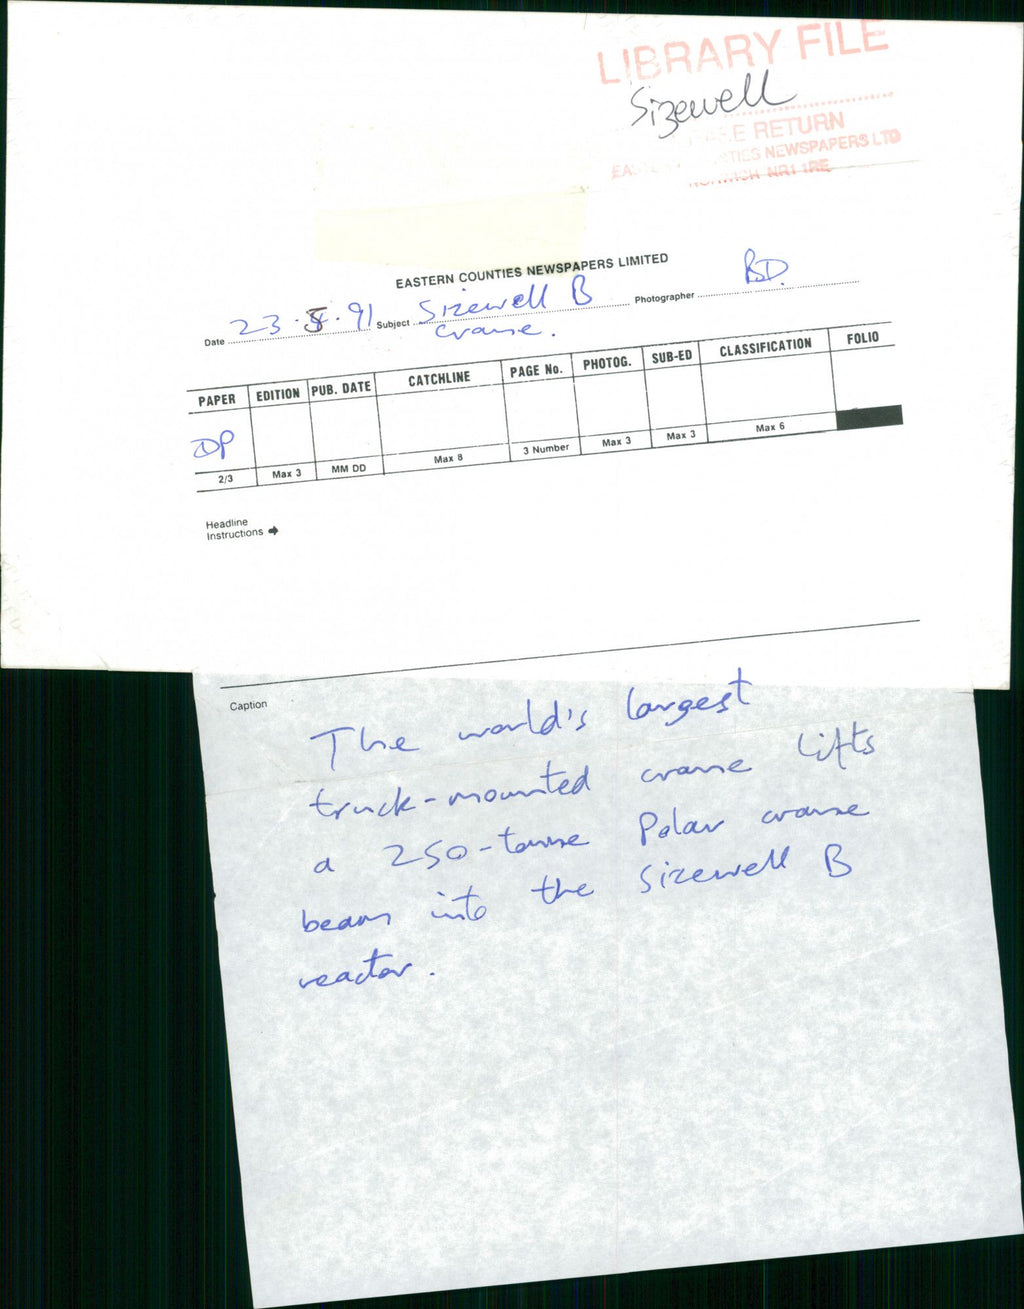 LIBRARY FILE
Sizewell
RETURN
NEWSPAPERS LTD
NORWICH NR1 1RE
EASTERN COUNTIES NEWSPAPERS LIMITED
Date 23 . . 91 Subject Sizewell B Photographer BD.
crane.
PAPER EDITION PUB. DATE CATCHLINE PAGE No. PHOTOG. SUB-ED CLASSIFICATION FOLIO
DP
2/3 Max 3 MM DD Max 8 3 Number Max 3 Max 3 Max 6
Headline
Instructions →
Caption
The world's largest
truck-mounted crane lifts
a 250-tonne Polar crane
beam into the Sizewell B
reactor.